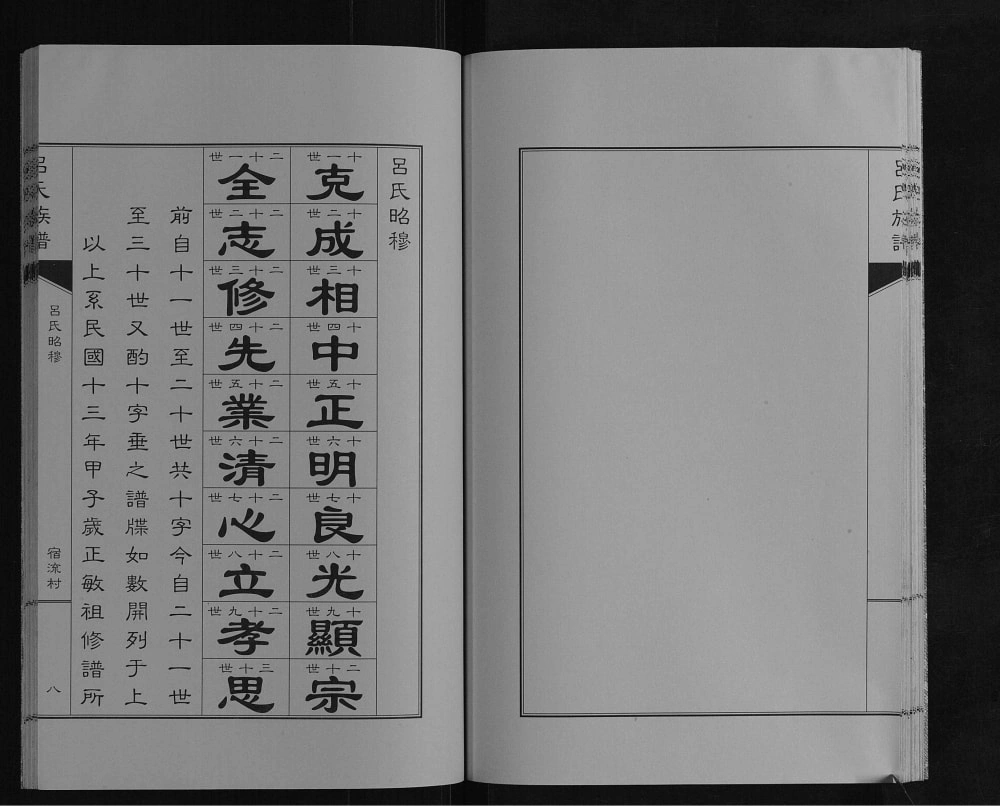 呂氏族譜
呂氏昭穆
十一世 克
十二世 成
十三世 相
十四世 中
十五世 正
十六世 明
十七世 良
十八世 光
十九世 顯
二十世 宗
二十一世 全
二十二世 志
二十三世 修
二十四世 先
二十五世 業
二十六世 清
二十七世 心
二十八世 立
二十九世 孝
三十世 思
前自十一世至二十世共十字今自二十一世
至三十世又酌十字垂之譜牒如數開列于上
以上系民國十三年甲子歲正敏祖修譜所
呂氏族譜
呂氏昭穆
宿流村
八